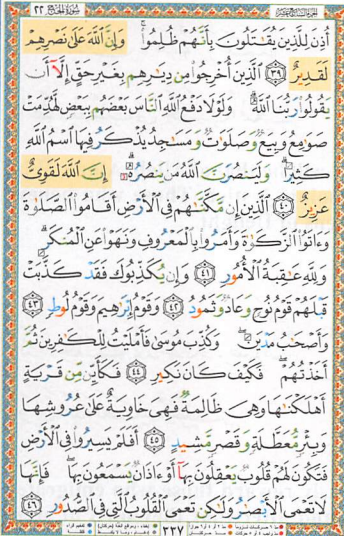 سورة الحج ٢٢
الجزء السابع عشر
أُذِنَ لِلَّذِينَ يُقَٰتَلُونَ بِأَنَّهُمۡ ظُلِمُواْۚ وَإِنَّ ٱللَّهَ عَلَىٰ نَصۡرِهِمۡ
لَقَدِيرٌ ٣٩ ٱلَّذِينَ أُخۡرِجُواْ مِن دِيَٰرِهِم بِغَيۡرِ حَقٍّ إِلَّآ أَن
يَقُولُواْ رَبُّنَا ٱللَّهُۗ وَلَوۡلَا دَفۡعُ ٱللَّهِ ٱلنَّاسَ بَعۡضَهُم بِبَعۡضٖ لَّهُدِّمَتۡ
صَوَٰمِعُ وَبِيَعٞ وَصَلَوَٰتٞ وَمَسَٰجِدُ يُذۡكَرُ فِيهَا ٱسۡمُ ٱللَّهِ
كَثِيرٗاۗ وَلَيَنصُرَنَّ ٱللَّهُ مَن يَنصُرُهُۥٓۚ إِنَّ ٱللَّهَ لَقَوِيٌّ
عَزِيزٌ ٤٠ ٱلَّذِينَ إِن مَّكَّنَّٰهُمۡ فِي ٱلۡأَرۡضِ أَقَامُواْ ٱلصَّلَوٰةَ
وَءَاتَوُاْ ٱلزَّكَوٰةَ وَأَمَرُواْ بِٱلۡمَعۡرُوفِ وَنَهَوۡاْ عَنِ ٱلۡمُنكَرِۗ
وَلِلَّهِ عَٰقِبَةُ ٱلۡأُمُورِ ٤١ وَإِن يُكَذِّبُوكَ فَقَدۡ كَذَّبَتۡ
قَبۡلَهُمۡ قَوۡمُ نُوحٖ وَعَادٞ وَثَمُودُ ٤٢ وَقَوۡمُ إِبۡرَٰهِيمَ وَقَوۡمُ لُوطٖ ٤٣
وَأَصۡحَٰبُ مَدۡيَنَۖ وَكُذِّبَ مُوسَىٰۖ فَأَمۡلَيۡتُ لِلۡكَٰفِرِينَ ثُمَّ
أَخَذۡتُهُمۡۖ فَكَيۡفَ كَانَ نَكِيرِ ٤٤ فَكَأَيِّن مِّن قَرۡيَةٍ
أَهۡلَكۡنَٰهَا وَهِيَ ظَالِمَةٞ فَهِيَ خَاوِيَةٌ عَلَىٰ عُرُوشِهَا
وَبِئۡرٖ مُّعَطَّلَةٖ وَقَصۡرٖ مَّشِيدٍ ٤٥ أَفَلَمۡ يَسِيرُواْ فِي ٱلۡأَرۡضِ
فَتَكُونَ لَهُمۡ قُلُوبٞ يَعۡقِلُونَ بِهَآ أَوۡ ءَاذَانٞ يَسۡمَعُونَ بِهَاۖ فَإِنَّهَا
لَا تَعۡمَى ٱلۡأَبۡصَٰرُ وَلَٰكِن تَعۡمَى ٱلۡقُلُوبُ ٱلَّتِي فِي ٱلصُّدُورِ ٤٦
٣٣٧